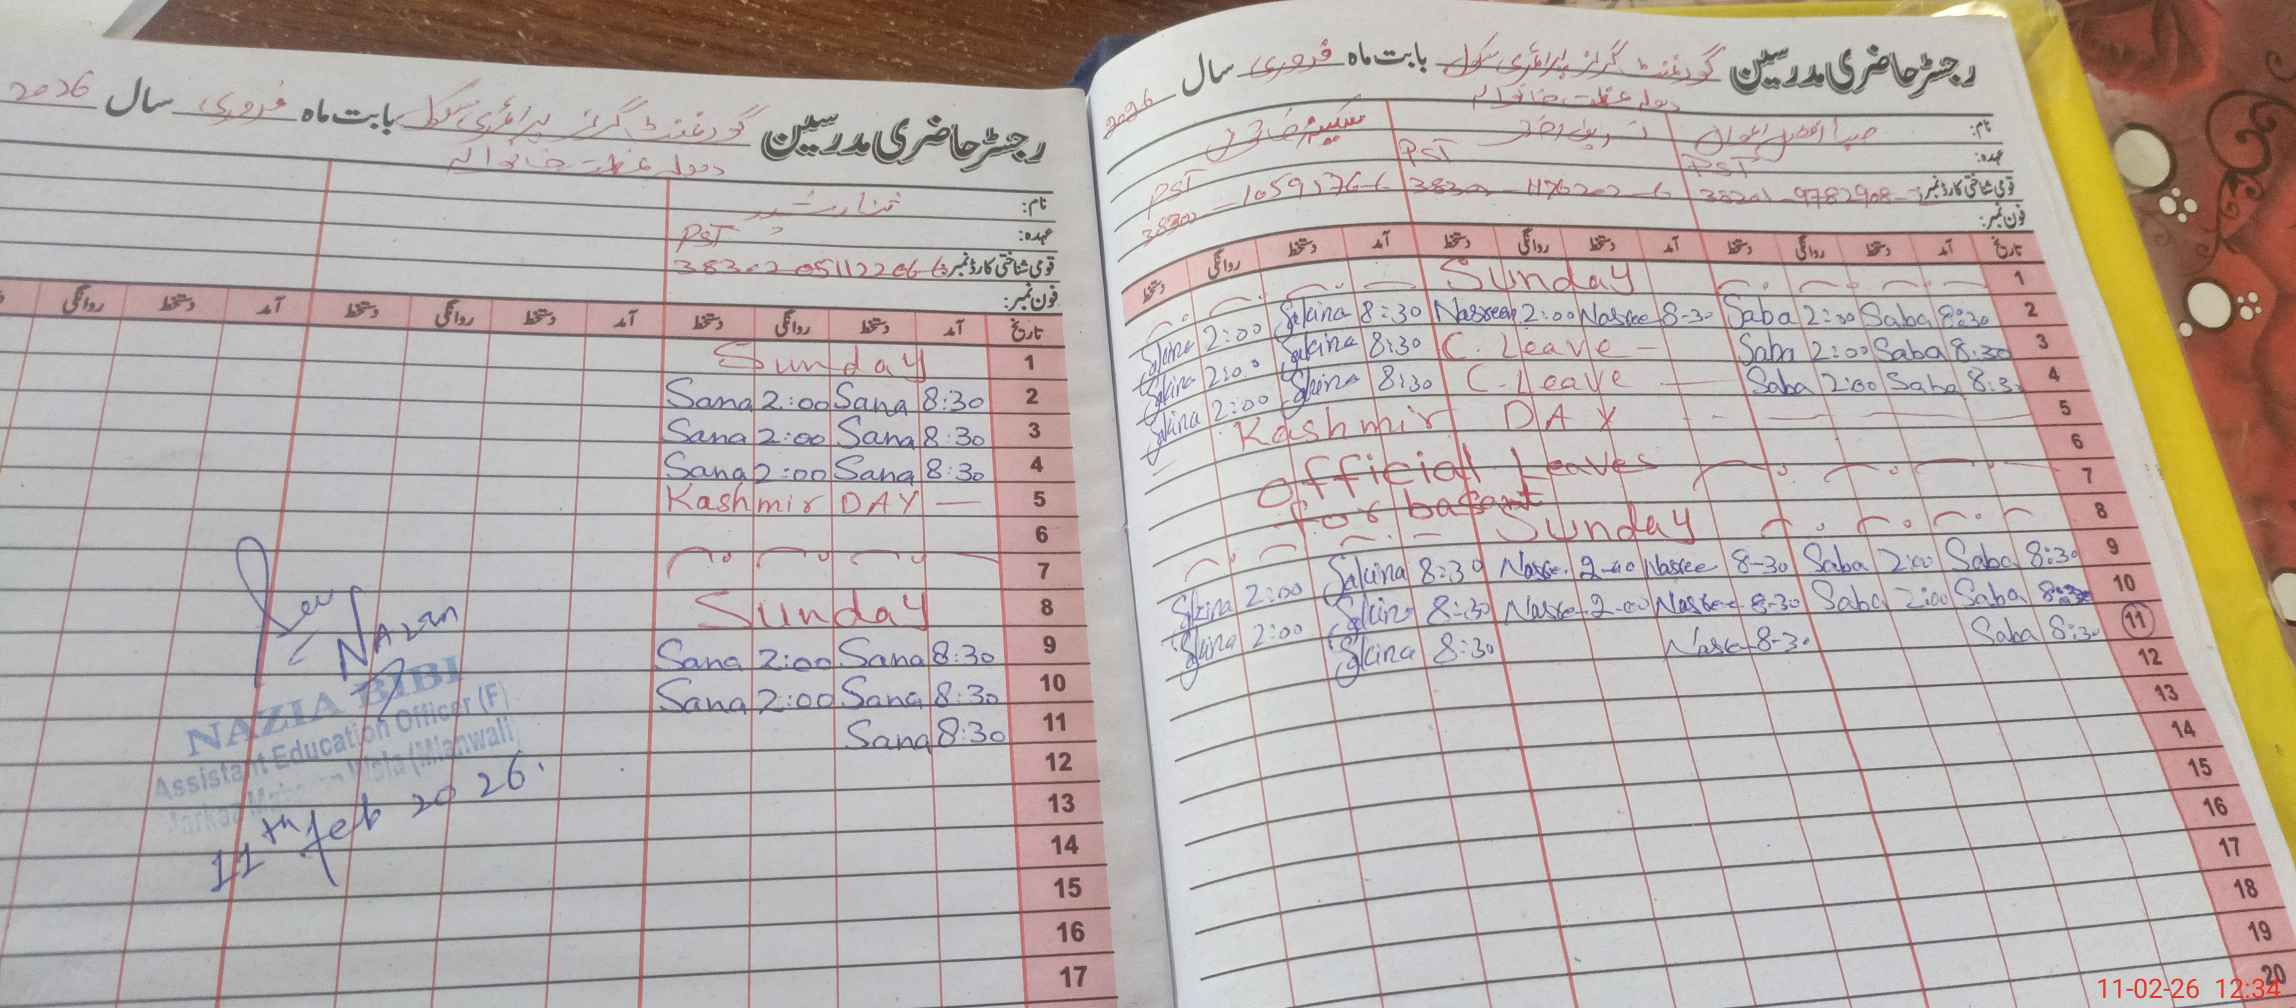 رجسٹر حاضری مدرسین گورنمنٹ گرلز پرائمری سکول بابت ماہ فروری سال 2026
نام:
عہدہ: PST PST PST
قومی شناختی کارڈ نمبر:
فون نمبر:
تاریخ آمد دستخط روانگی دستخط آمد دستخط روانگی دستخط آمد دستخط روانگی دستخط
1 Sunday
2 Sakina 2:00 Sakina 8:30 Nasreen 2:00 Nasree 8-30 Saba 2:30 Saba 8:30
3 Sakina 2:00 Sakina 8:30 C. Leave - Saba 2:00 Saba 8:30
4 Sakina 2:00 Sakina 8:30 C. Leave — Saba 2:00 Saba 8:30
5 Kashmir DAY
6 official Leaves
7 for basant
8 Sunday
9 Sakina 2:00 Sakina 8:30 Nasre. 2-00 Nasree 8-30 Saba 2:00 Saba 8:30
10 Sakina 2:00 Sakina 8:30 Nasre 2-00 Nasree 8-30 Saba 2:00 Saba 8:30
11 Sakina 8:30 Nasre 8-30 Saba 8:30
12
13
14
15
16
17
18
19
20
رجسٹر حاضری مدرسین گورنمنٹ گرلز پرائمری سکول بابت ماہ فروری سال 2026
نام:
عہدہ: PST
قومی شناختی کارڈ نمبر:
فون نمبر:
تاریخ آمد دستخط روانگی دستخط آمد دستخط روانگی دستخط آمد دستخط روانگی
1 Sunday
2 Sana 2:00 Sana 8:30
3 Sana 2:00 Sana 8:30
4 Sana 2:00 Sana 8:30
5 Kashmir DAY —
6
7
8 Sunday
9 Sana 2:00 Sana 8:30
10 Sana 2:00 Sana 8:30
11 Sana 8:30
12
13
14
15
16
17
NAZIA BIBI
Assistant Education Officer (F)
(Mianwali
11th feb 2026.
11-02-26 12:34